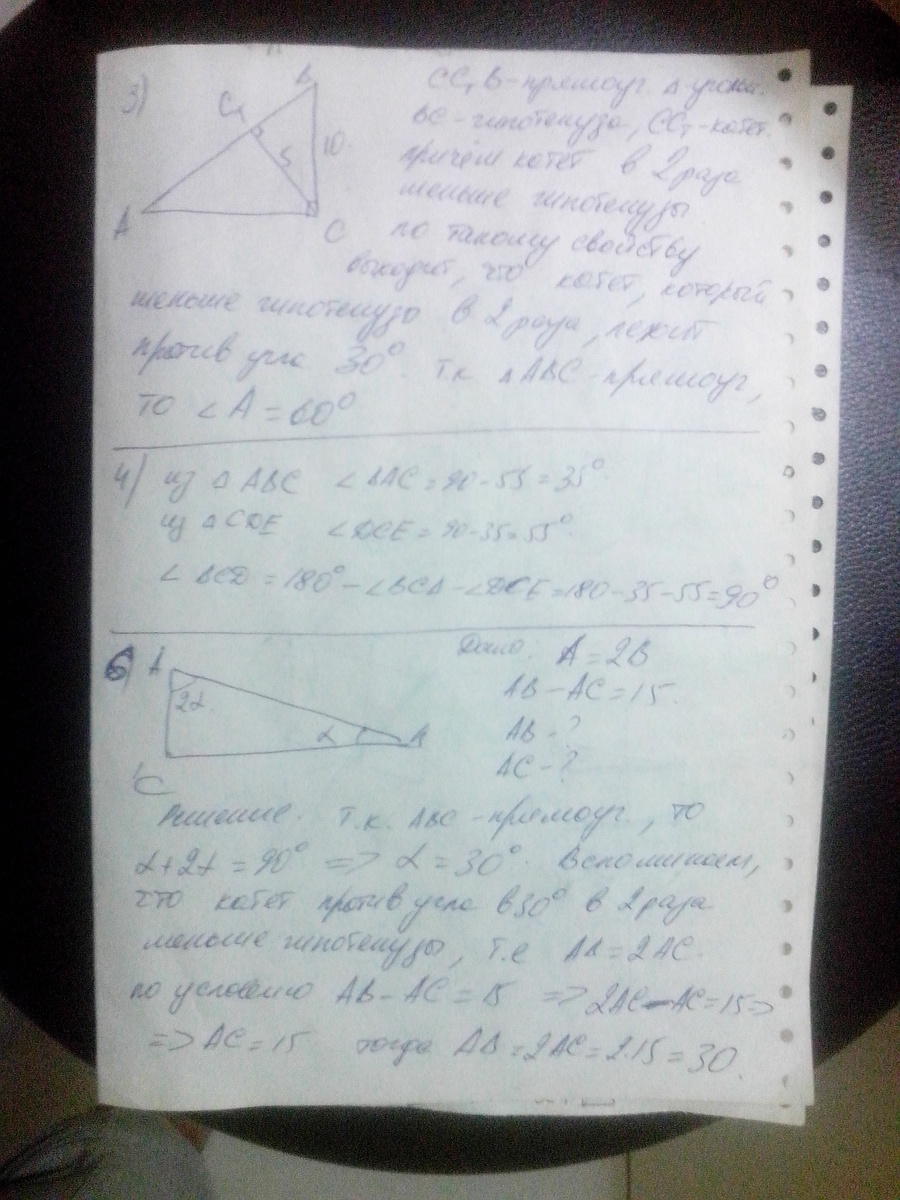 3)
B
C₁
10
5
A
C
CC₁B - прямоуг. Δ-угольн.
BC - гипотенуза, CC₁ - катет.
причём катет в 2 раза
меньше гипотенузы.
по такому свойству
выходит, что катет, который
меньше гипотенузо в 2 раза, лежит
против угла 30°. т.к ΔABC - прямоуг,
то ∠A = 60°
4) из ΔABC ∠BAC = 90-55 = 35°
из ΔCDE ∠DCE = 90-35=55°
∠BCD = 180° - ∠BCA - ∠DCE = 180-35-55=90°
6)
A
2α
α
C
Дано: A = 2B
AB - AC = 15
AB - ?
AC - ?
Решение. Т.к. ABC - прямоуг., то
α+2α = 90° => α = 30°. Вспоминаем,
что катет против угла в 30° в 2 раза
меньше гипотенузы, т.е AB = 2AC.
по условию AB - AC = 15 => 2AC - AC = 15 =>
=> AC = 15 тогда AB = 2AC = 2·15 = 30.